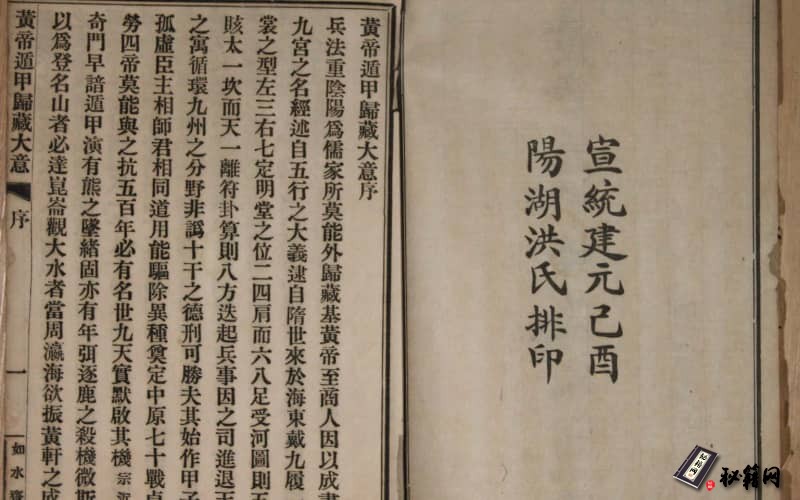 宣統建元己酉
陽湖洪氏排印
黃帝遁甲歸藏大意序
兵法重陰陽爲儒家所莫能外歸藏基黃帝至商人因以成書
九宮之名經述自五行之大義逮自隋世來於海東戴九履
裳之型左三右七定明堂之位二四肩而六八足受河圖則
賅太一坎而天一離符卦算則八方迭起兵事因之司進退
之寓循環九州之分野非譌十干之德刑可勝夫其始作甲子
孤虛臣主相師君相同道用能驅除異種奠定中原七十戰
勞四帝莫能與之抗五百年必有名世九天實默啟其機宗沂
奇門早諳遁甲演有熊之墜緒固亦有年弭逐鹿之殺機微斯
以爲登名山者必達崑崙觀大水者當周瀛海欲振黃軒之
黃帝遁甲歸藏大意
序
一
如水齋
秘籍网